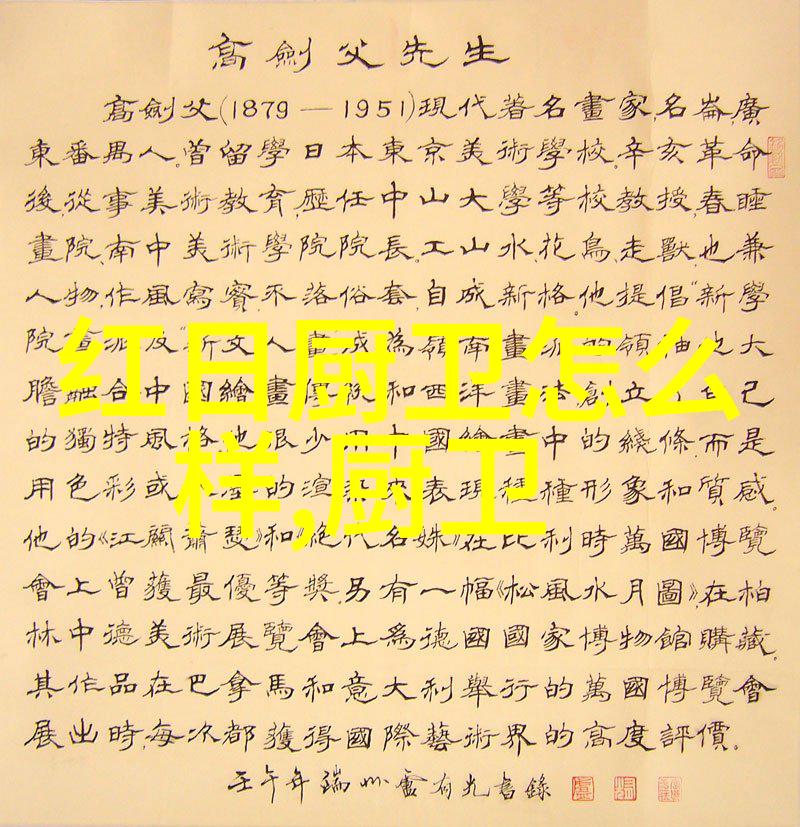 高劍父先生
高劍父(1879—1951)現代著名畫家,名崙,廣
東番禺人。曾留學日本東京美術學校。辛亥革命
後,從事美術教育,歷任中山大學等校教授,春睡
畫院、南中美術學院院長。工山水、花鳥、走獸,也兼
人物,作風寫實,不落俗套,自成新格。他提倡“新學
院畫派及“新文人畫成為嶺南畫派的領袖
膽融合中國繪畫和西洋畫法創立自己
的獨特風格他很少用中國繪畫中的綫條,而是
用色彩或的渲染來表現種種形象和質感。
他的《江關蕭瑟》和《絕代名姝》在比利時萬國博覽
會上曾獲最優等獎,另有一幅《松風水月圖》,在柏
林中德美術展覽會上為德國國家博物館購藏。
其作品在巴拿馬和意大利舉行的萬國博覽會
展出時,每次都獲得國際藝術界的高度評價。
壬午年端州盧有光書錄
红日厨卫怎么
样,厨卫